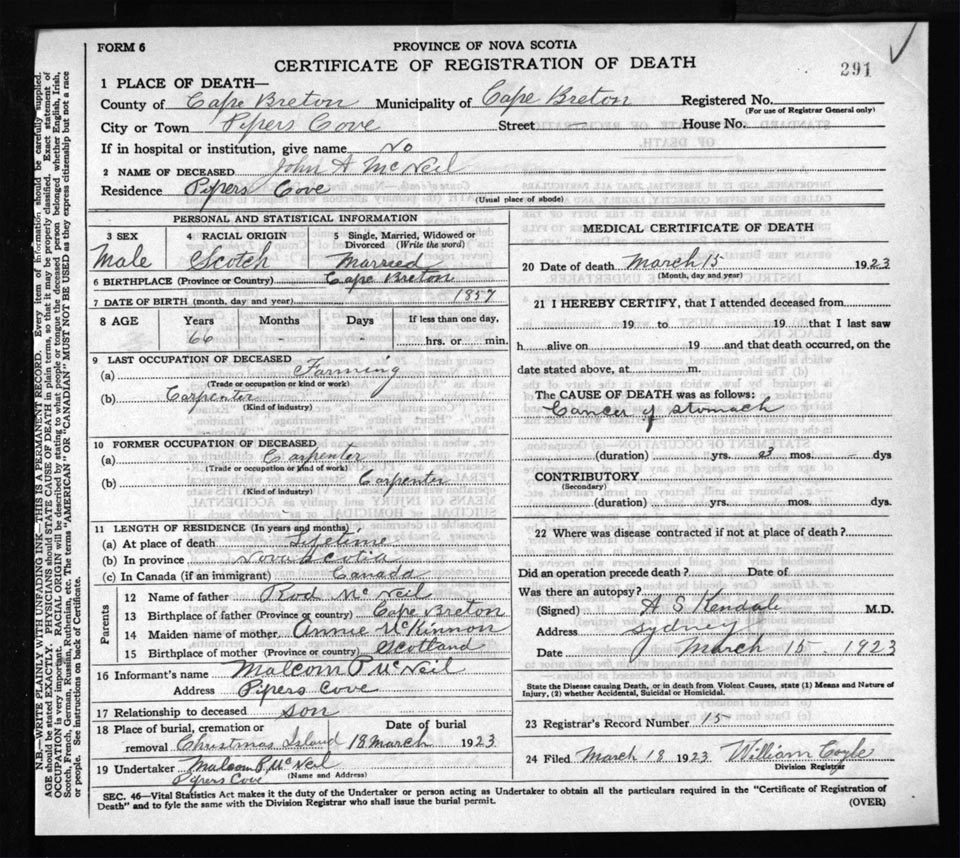 FORM 6
PROVINCE OF NOVA SCOTIA
CERTIFICATE OF REGISTRATION OF DEATH
291
1 PLACE OF DEATH—
County of Cape Breton Municipality of Cape Breton Registered No.
(For use of Registrar General only)
City or Town Pipers Cove Street — House No.
If in hospital or institution, give name No
2 NAME OF DECEASED John A McNeil
Residence Pipers Cove
(Usual place of abode)
PERSONAL AND STATISTICAL INFORMATION
3 SEX 4 RACIAL ORIGIN 5 Single, Married, Widowed or Divorced (Write the word)
Male Scotch Married
6 BIRTHPLACE (Province or Country) Cape Breton
7 DATE OF BIRTH (month, day and year) 1857
8 AGE Years Months Days If less than one day,
66 hrs. or min.
9 LAST OCCUPATION OF DECEASED
(a) Farming
(Trade or occupation or kind or work)
(b) Carpenter
(Kind of industry)
10 FORMER OCCUPATION OF DECEASED
(a) Carpenter
(Trade or occupation or kind of work)
(b) Carpenter
(Kind of industry)
11 LENGTH OF RESIDENCE (In years and months)
(a) At place of death Lifetime
(b) In province Nova Scotia
(c) In Canada (if an immigrant) Canada
Parents
12 Name of father Rod McNeil
13 Birthplace of father (Province or country) Cape Breton
14 Maiden name of mother Annie McKinnon
15 Birthplace of mother (Province or country) Scotland
16 Informant's name Malcom P McNeil
Address Pipers Cove
17 Relationship to deceased son
18 Place of burial, cremation or removal Christmas Island Date of burial 18 March 1923
19 Undertaker Malcom P McNeil
Pipers Cove (Name and Address)
MEDICAL CERTIFICATE OF DEATH
20 Date of death March 15 1923
(Month, day and year)
21 I HEREBY CERTIFY, that I attended deceased from
19 to 19 that I last saw
h alive on 19 and that death occurred, on the
date stated above, at m.
The CAUSE OF DEATH was as follows:
Cancer of stomach
(duration) yrs. mos. - dys
CONTRIBUTORY
(Secondary)
(duration) yrs. mos. dys.
22 Where was disease contracted if not at place of death?
Did an operation precede death? Date of
Was there an autopsy?
(Signed) A S Kendall M.D.
Address Sydney
Date March 15 1923
State the Disease causing Death, or in death from Violent Causes, state (1) Means and Nature of
Injury, (2) whether Accidental, Suicidal or Homicidal.
23 Registrar's Record Number 15
24 Filed March 18 1923 William Coyle
Division Registrar
SEC. 46—Vital Statistics Act makes it the duty of the Undertaker or person acting as Undertaker to obtain all the particulars required in the "Certificate of Registration of
Death" and to fyle the same with the Division Registrar who shall issue the burial permit.
(OVER)
N.B.—WRITE PLAINLY WITH UNFADING INK—THIS IS A PERMANENT RECORD. Every item of information should be carefully supplied.
AGE should be stated EXACTLY. PHYSICIANS should STATE CAUSE OF DEATH in plain terms, so that it may be properly classified. Exact statement of
OCCUPATION is very important. RACIAL ORIGIN will be described by stating to what people or tongue the deceased person belonged, whether English, Irish,
Scotch, French, German, Russian, Ruthenian, etc. The terms "AMERICAN" OR "CANADIAN" MUST NOT BE USED as they express citizenship but not a race
or people. See instructions on back of Certificate.